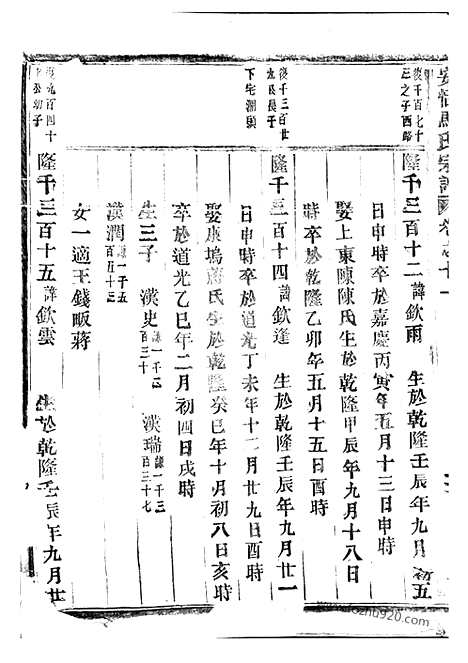 馬氏宗譜
後千百七十
三之子西歸
隆千三百十二諱欽雨 生於乾隆壬辰年九月初五
日申時卒於嘉慶丙寅年五月十三日申時
娶上東陳陳氏生於乾隆甲辰年九月十八日
時卒於乾隆乙卯年五月十五日酉時
後千三百廿
九公長子
下宅湖頭
隆千三百十四諱欽逢 生於乾隆壬辰年九月廿一
日申時卒於道光丁未年十二月廿九日酉時
娶康塢蔣氏生於乾隆癸巳年十月初八日亥時
卒於道光乙巳年二月初四日戌時
生三子 漢史謙一千三百三十 漢瑞謙一千三百三十七
漢潤謙一千五百五十三
女一適王錢畈蔣
九百四十
公幼子
隆千三百十五諱欽雲 生於乾隆壬辰年九月廿
www.fozhu920.com